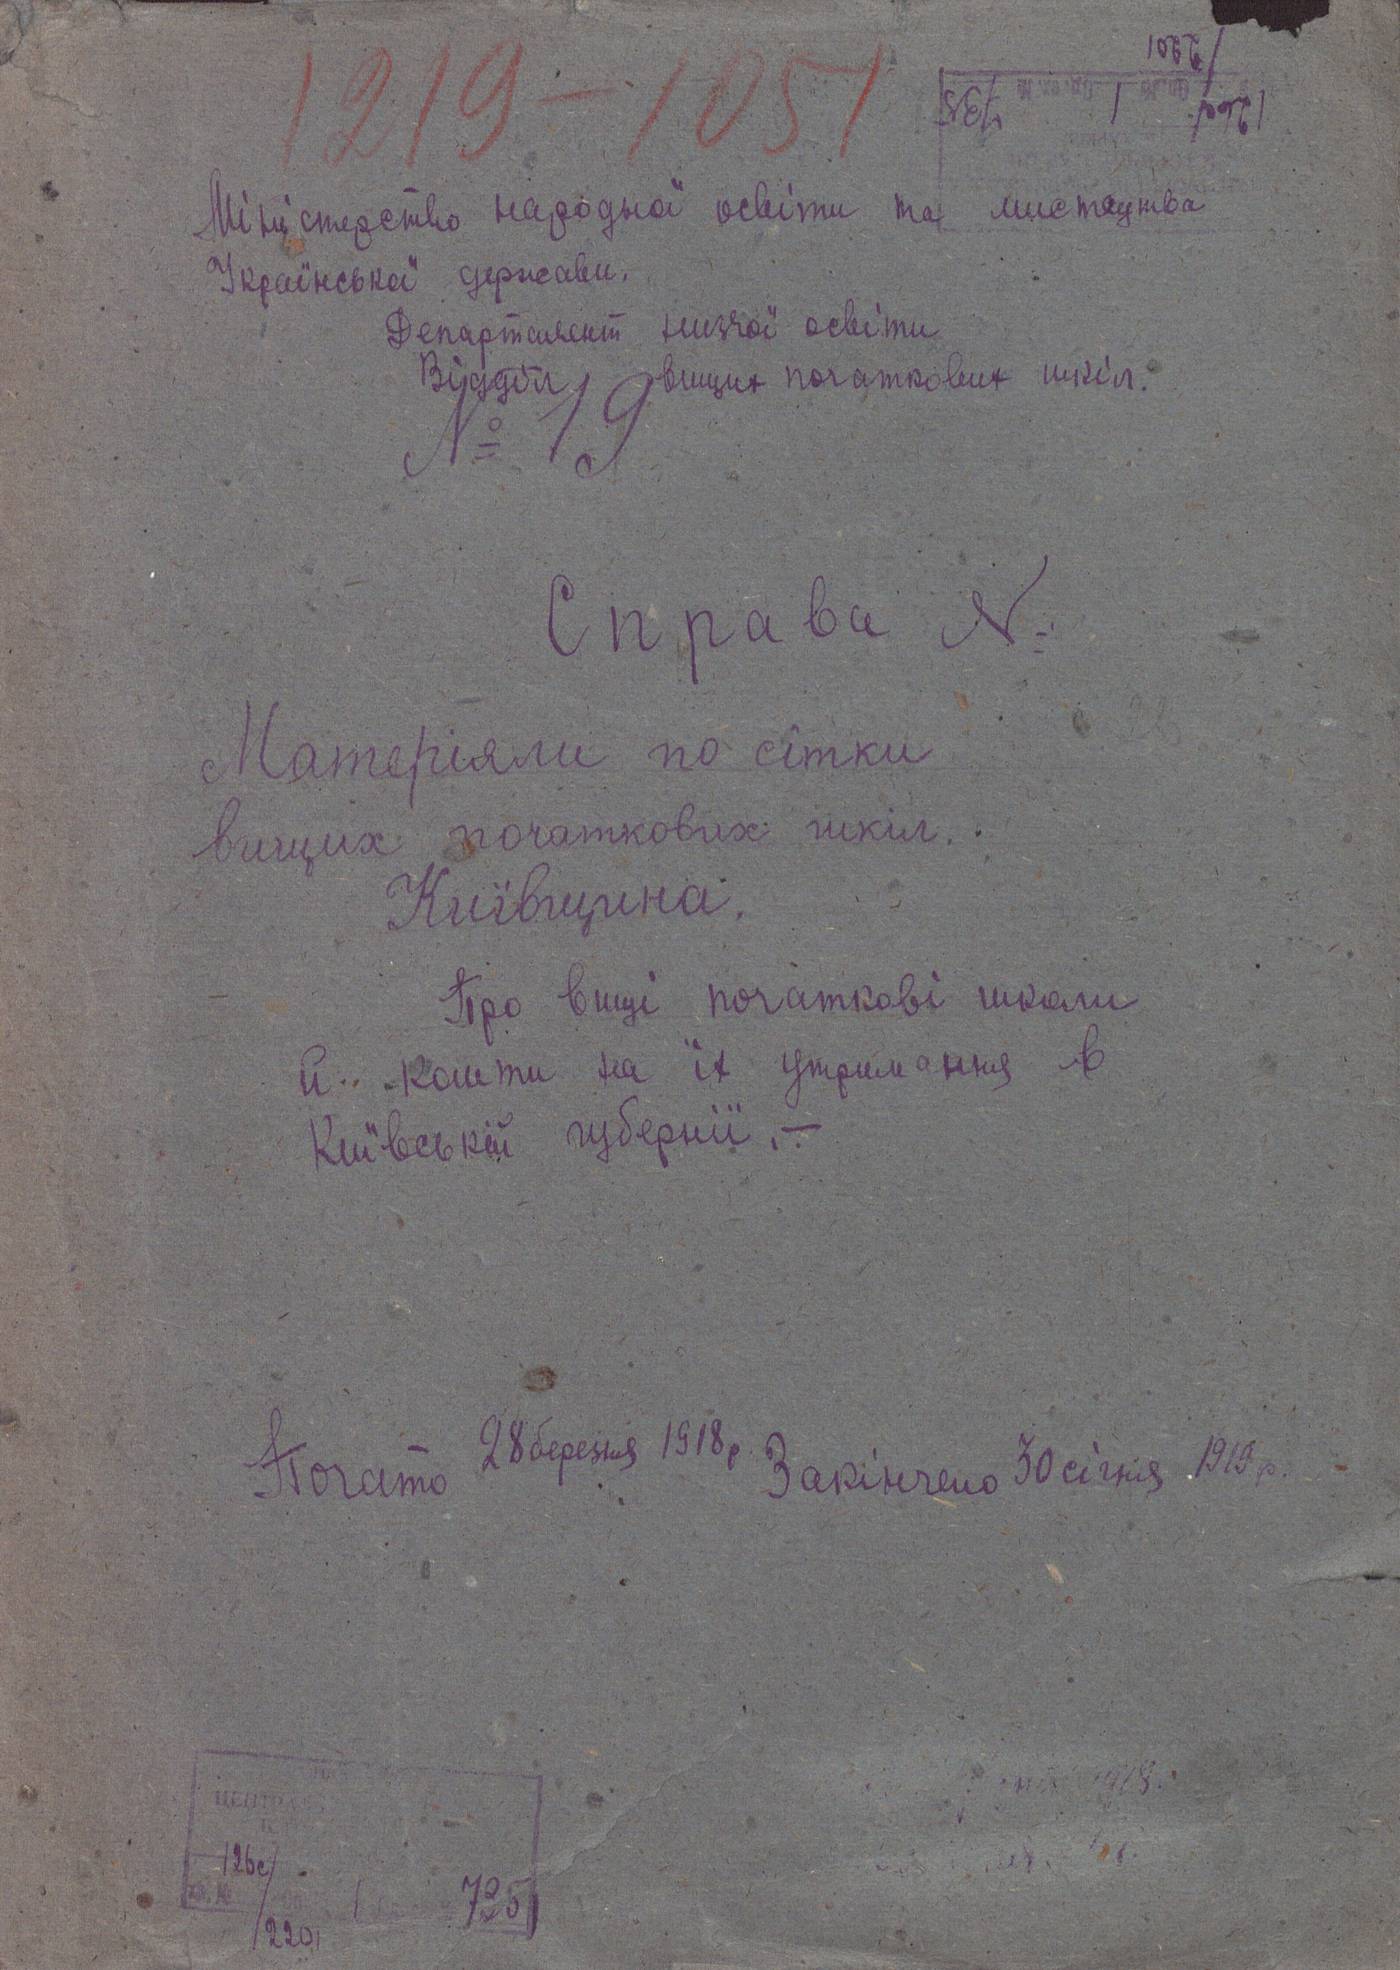 1219-1051
2201
126c/ 1 735
Міністерство народньої освіти та мистецтва
Української держави.
Департамент низчої освіти
Відділ вищих початкових шкіл.
№ 19
Справа №
Матеріяли по сітки
вищих початкових шкіл.
Київщина.
Про вищі початкові школи
й кошти на їх утримання в
Київській губернії.—
Почато 28 березня 1918 р. Закінчено 30 січня 1919 р.
1918.
ЦЕНТРАЛ
126c/ 1 725
2201